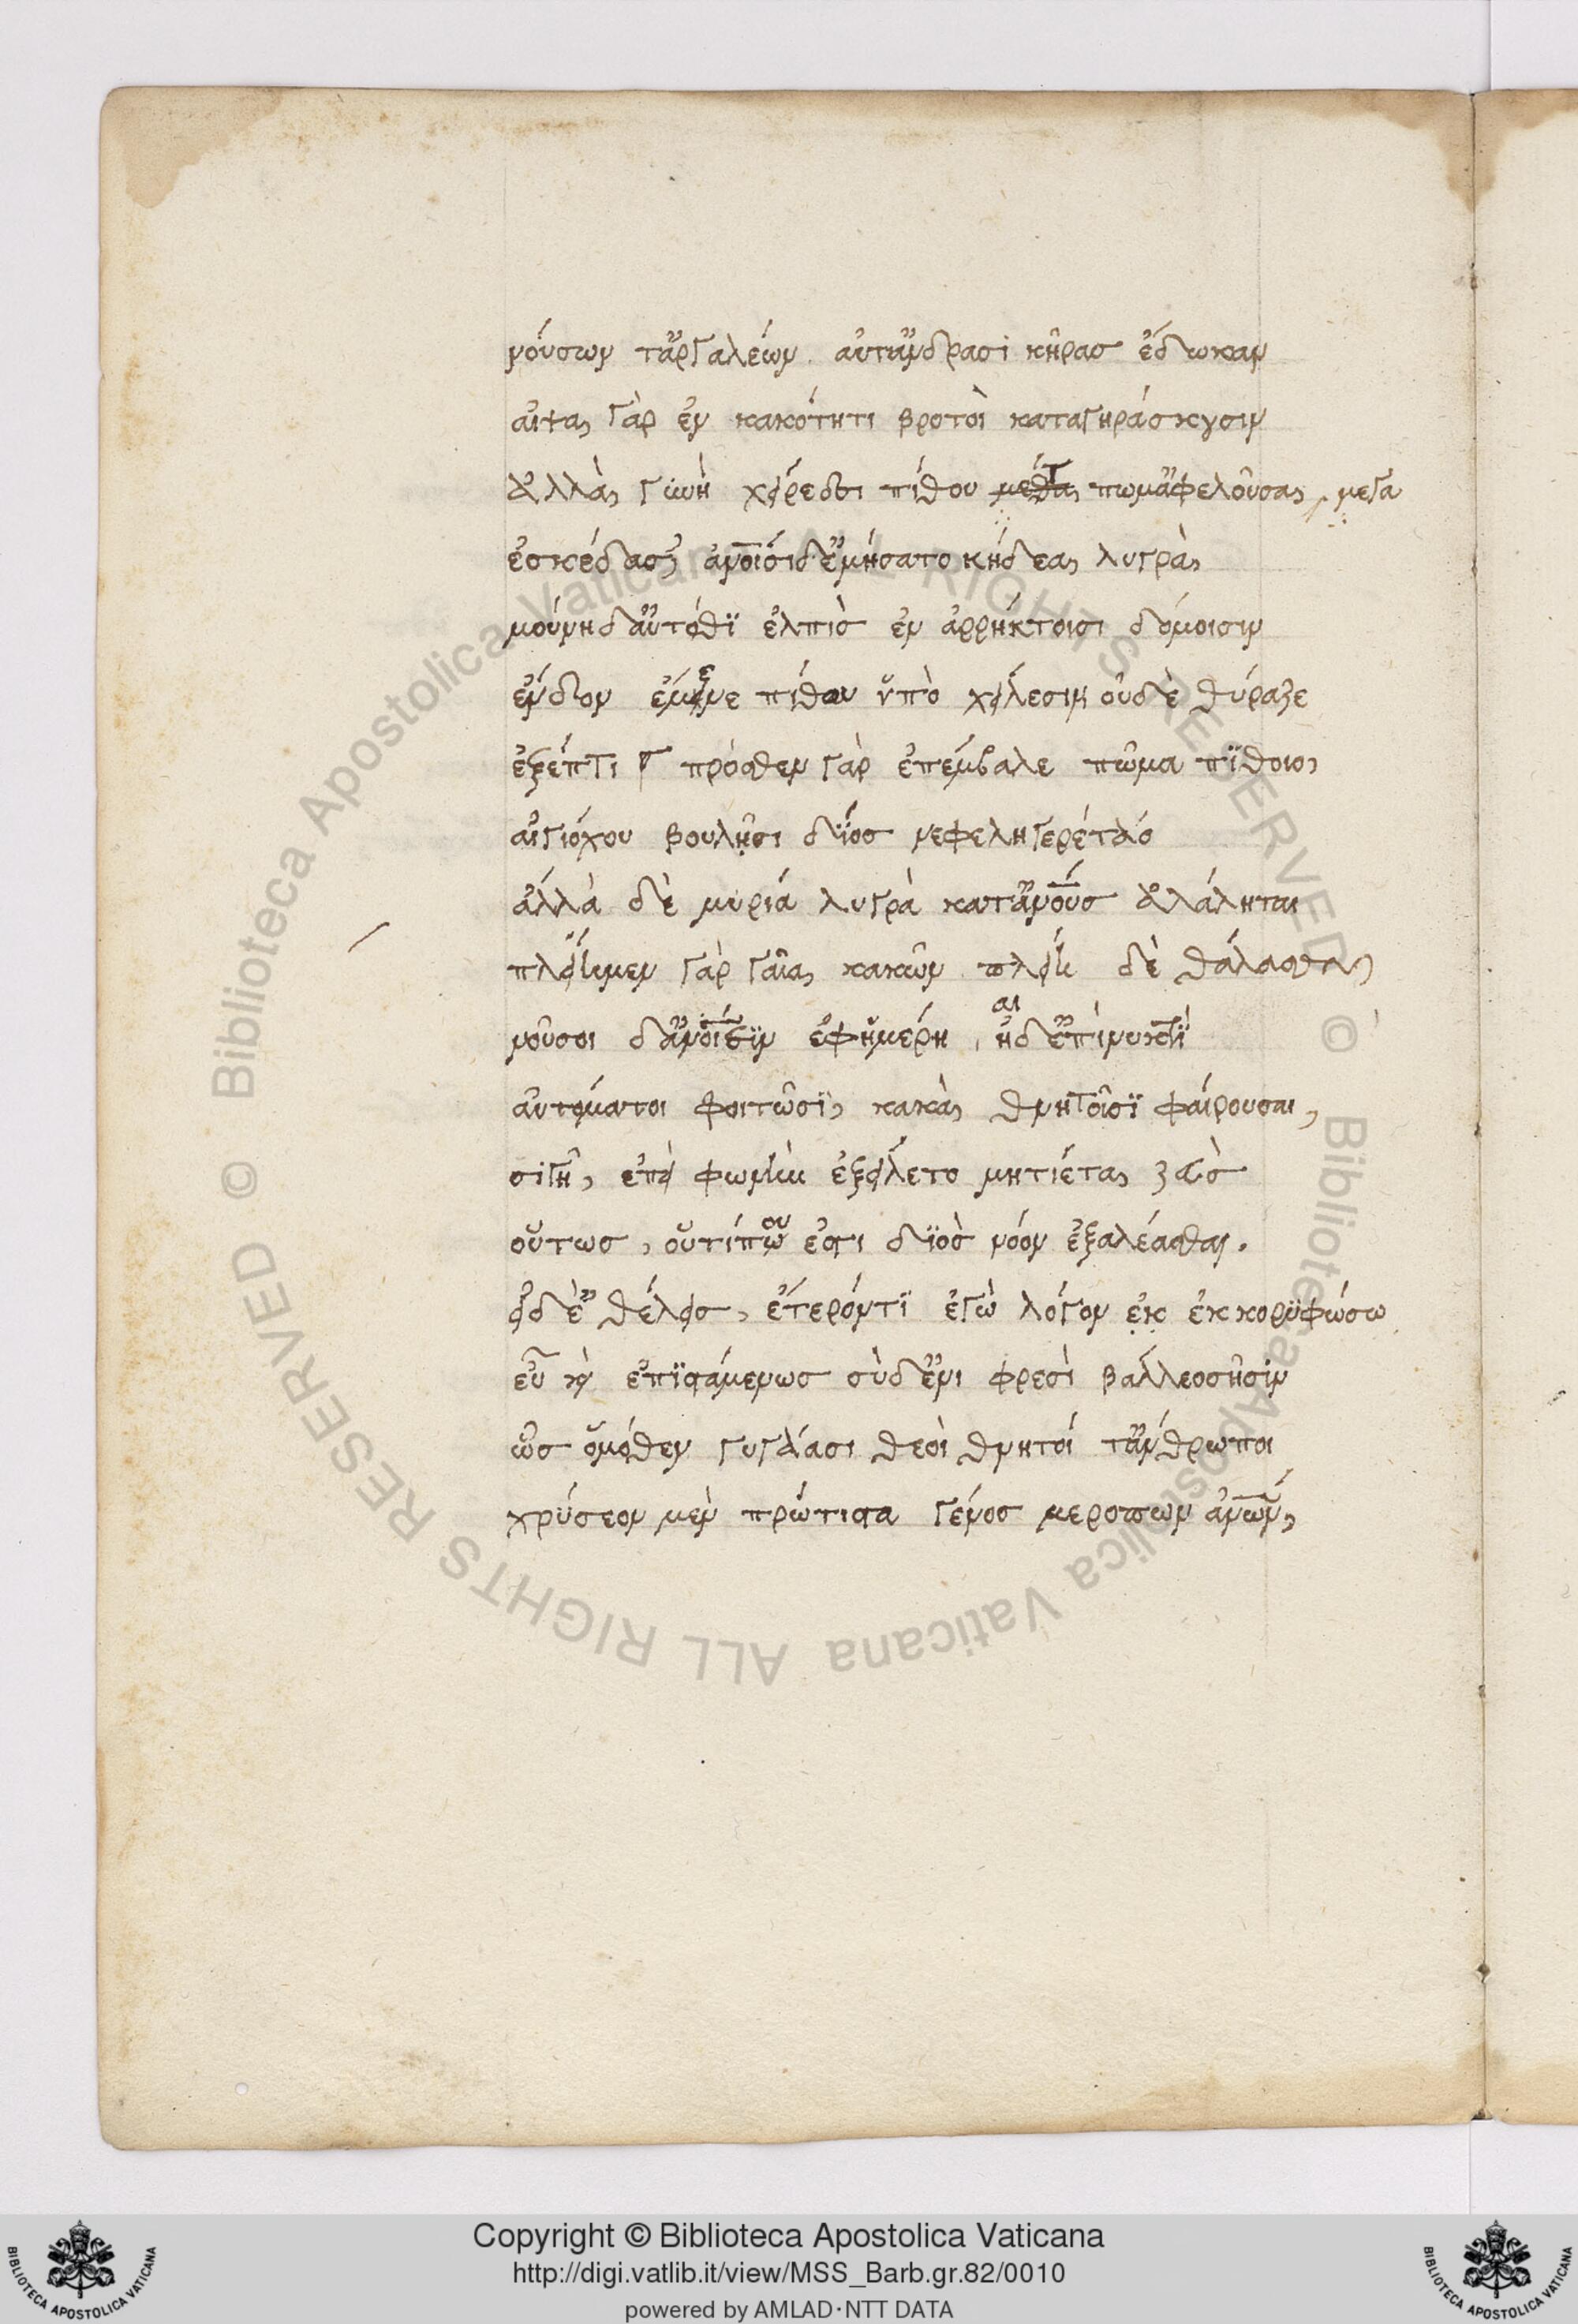 νούσων τ' ἀργαλέων αὐτ' ἄνδρασι κῆρας ἔδωκαν
αἶψα γὰρ ἐν κακότητι βροτοὶ καταγηράσκουσιν
ἀλλὰ γυνὴ χείρεσσι πίθου μέγα πωμ' ἀφελοῦσα, μεγα
ἐσκέδασ' ἀνοισι δ' ἐμήσατο κήδεα λυγρὰ
μούνη δ' αὐτόθϊ ἐλπὶσ ἐν ἀρρήκτοισι δόμοισιν
ἔνδον ἔμεινε πίθου ὑπὸ χείλεσιν οὐδὲ θύραζε
ἐξέπτη πρόσθεν γὰρ ἐπέμβαλε πῶμα πϊθοιο
αἰγιόχου βουλῆσι διὸσ νεφεληγερέταο
ἄλλα δὲ μυρία λυγρὰ κατ' ἀνους ἀλάληται
πλείη μεν γὰρ γαῖα κακῶν πλείη δὲ θάλασσα
νοῦσοι δ' ἀνοισϊν ἐφημέρη, αι ἠδ' ἐπὶ νυκτϊ
αὐτόματοι φοιτῶσϊ, κακὰ θνητοῖσϊ φέρουσαι,
σιγῆ, ἐπεὶ φωνὴν ἐξείλετο μητιέτα ζεὺσ
οὕτωσ, οὔτί που ἔστι διὸσ νόον ἐξαλέασθαι.
εἰ δ' ἐθέλεισ, ἕτερόν τϊ ἐγὼ λόγον ἐκ ἐκκορϋφώσω
εὖ καὶ ἐπϊσταμένωσ σὺ δ' ἐνὶ φρεσὶ βάλλεο σῆσιν
ὡσ ὁμόθεν γεγάασι θεοὶ θνητοί τ' ἄνθρωποι
χρύσεον μὲν πρώτιστα γένοσ μεροπων ἀνων,
Copyright © Biblioteca Apostolica Vaticana
http://digi.vatlib.it/view/MSS_Barb.gr.82/0010
powered by AMLAD·NTT DATA
BIBLIOTECA APOSTOLICA VATICANA
BIBLIOTECA APOSTOLICA VATICANA
© Biblioteca Apostolica Vaticana ALL RIGHTS RESERVED © Biblioteca Apostolica Vaticana ALL RIGHTS RESERVED